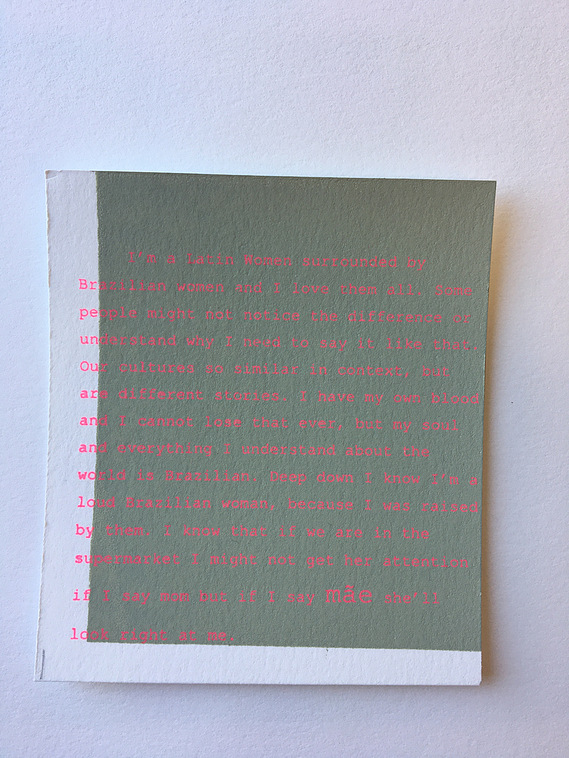 I'm a Latin Women surrounded by
Brazilian women and I love them all. Some
people might not notice the difference or
understand why I need to say it like that.
Our cultures so similar in context, but
are different stories. I have my own blood
and I cannot lose that ever, but my soul
and everything I understand about the
world is Brazilian. Deep down I know I'm a
loud Brazilian woman, because I was raised
by them. I know that if we are in the
supermarket I might not get her attention
if I say mom but if I say mãe she'll
look right at me.